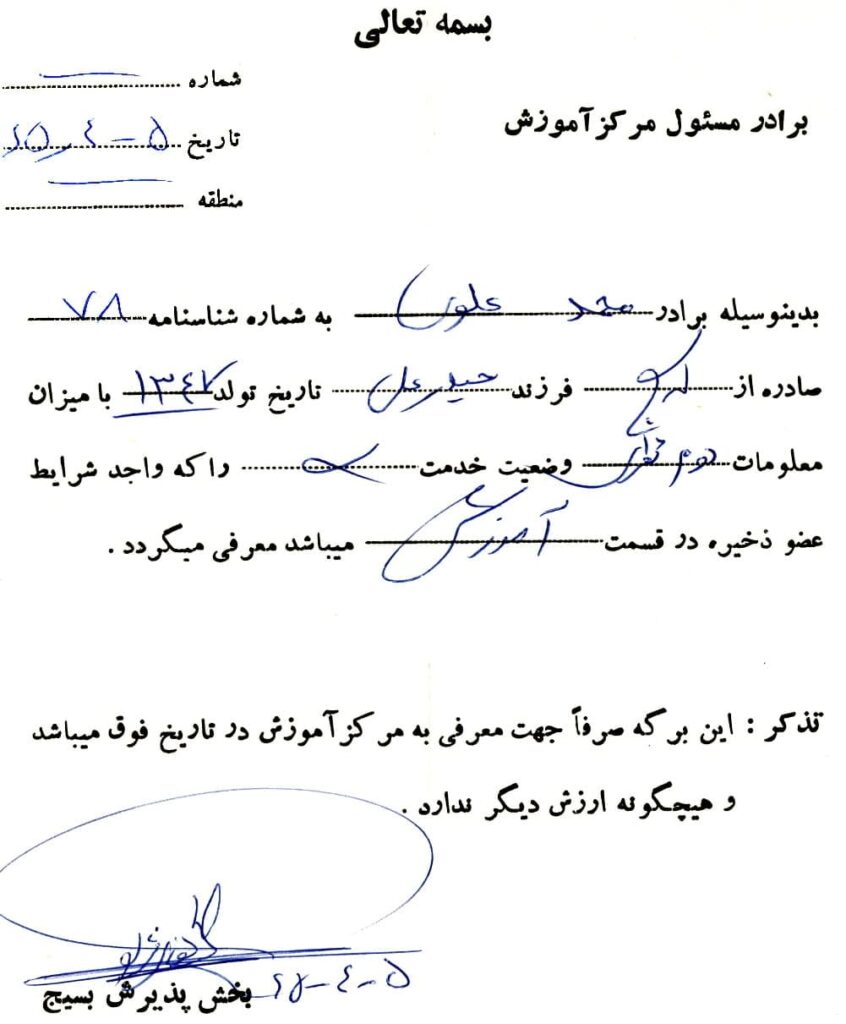 بسمه تعالی
شماره
تاریخ ۵-۴-۶۵
منطقه
برادر مسئول مرکز آموزش
بدینوسیله برادر محمد علوی به شماره شناسنامه ۷۸
صادره از فرزند حیدر علی تاریخ تولد ۱۳۴۷ با میزان
معلومات دوم وضعیت خدمت را که واجد شرایط
عضو ذخیره در قسمت آموزش میباشد معرفی میگردد .
تذکر : این برگه صرفاً جهت معرفی به مرکز آموزش در تاریخ فوق میباشد
و هیچگونه ارزش دیگر ندارد .
۵-۴-۶۵
بخش پذیرش بسیج